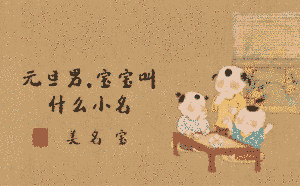 元旦男,宝宝叫
什么小名
美名宝